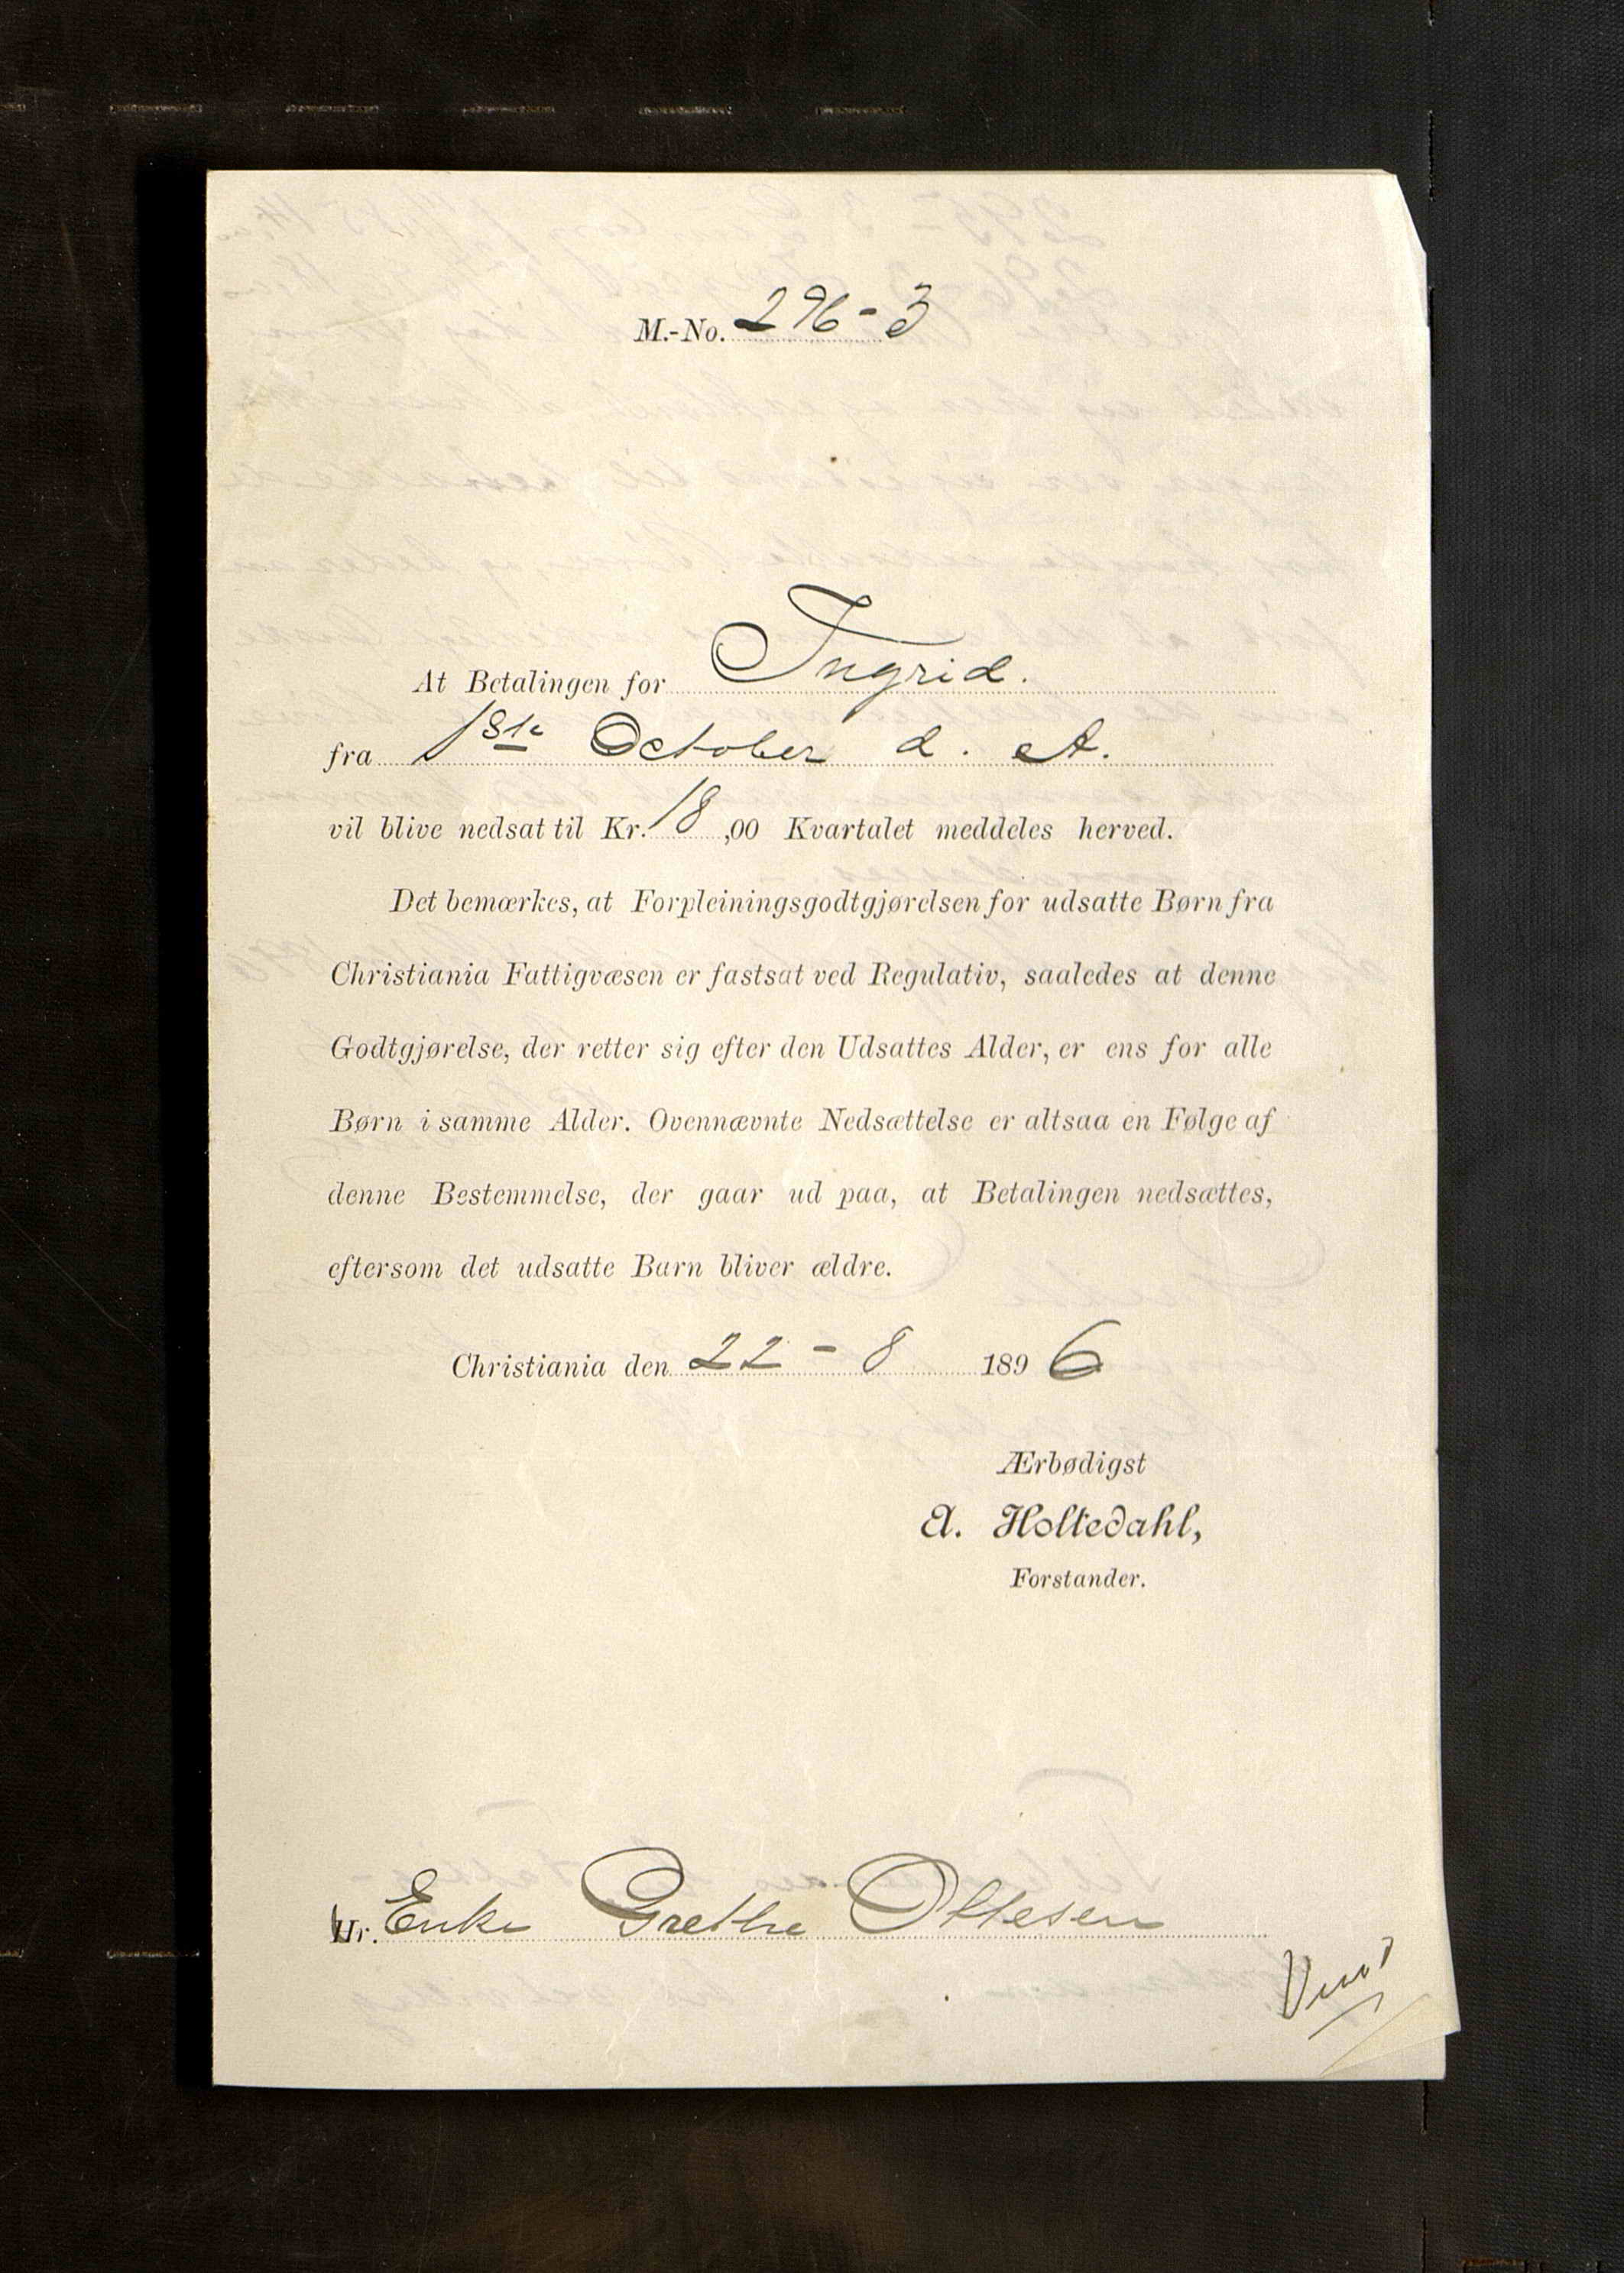 M.-No. 296-3
At Betalingen for Ingrid.
fra 1ste October d. A.
vil blive nedsat til Kr. 18,00 Kvartalet meddeles herved.
Det bemærkes, at Forpleiningsgodtgjørelsen for udsatte Børn fra
Christiania Fattigvæsen er fastsat ved Regulativ, saaledes at denne
Godtgjørelse, der retter sig efter den Udsattes Alder, er ens for alle
Børn i samme Alder. Ovennævnte Nedsættelse er altsaa en Følge af
denne Bestemmelse, der gaar ud paa, at Betalingen nedsættes,
eftersom det udsatte Barn bliver ældre.
Christiania den 22-8 1896
Ærbødigst
A. Holtedahl,
Forstander.
Hr. Enke Grethe Ottesen
Vend